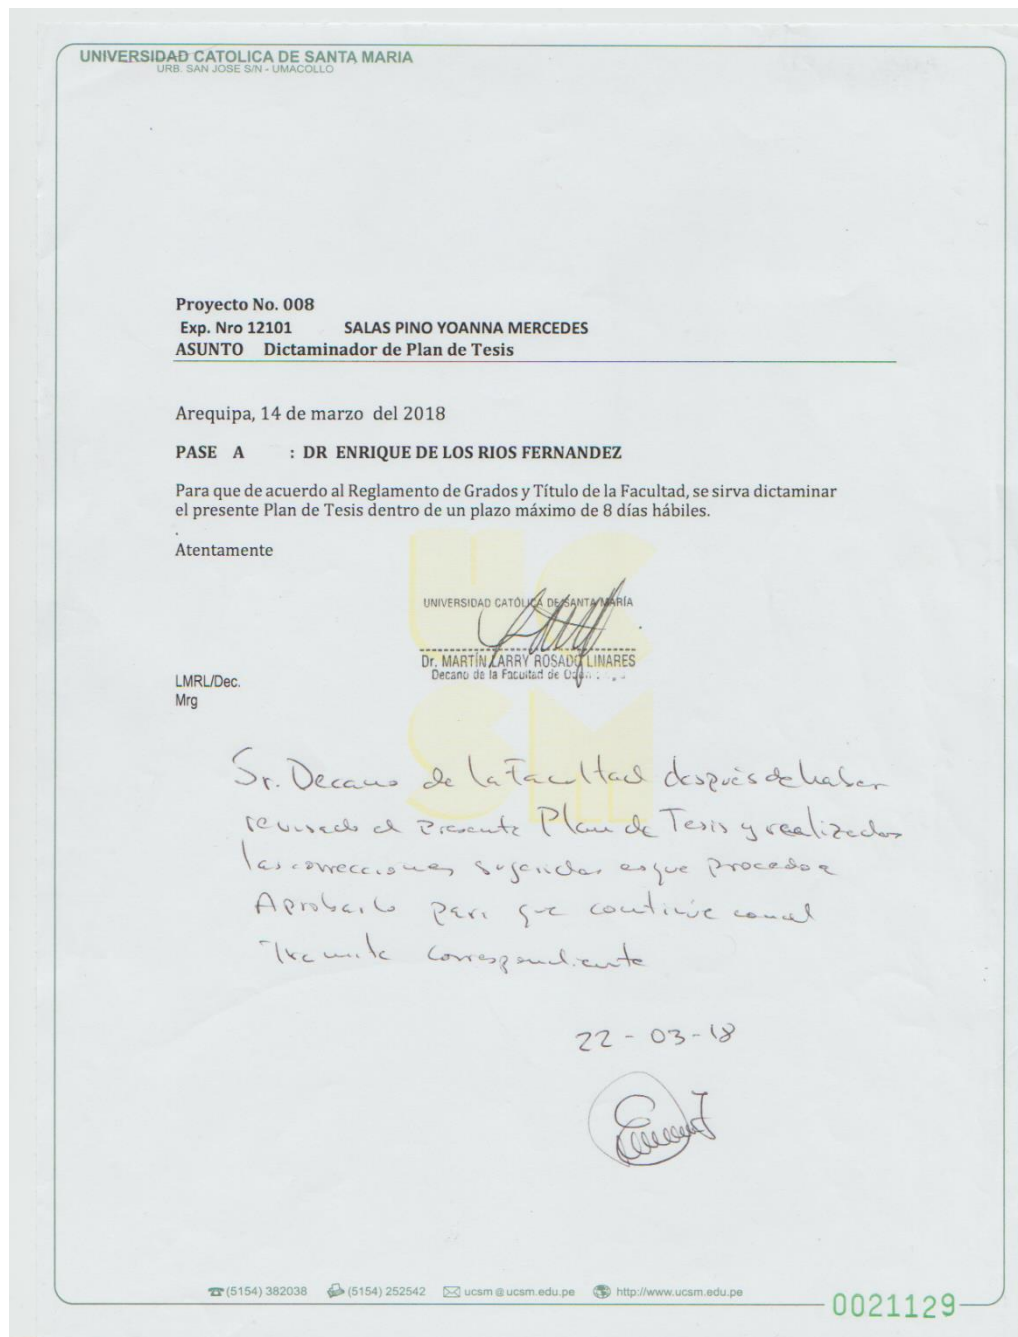 UNIVERSIDAD CATOLICA DE SANTA MARIA
URB. SAN JOSE S/N - UMACOLLO
Proyecto No. 008
Exp. Nro 12101 SALAS PINO YOANNA MERCEDES
ASUNTO Dictaminador de Plan de Tesis
Arequipa, 14 de marzo del 2018
PASE A : DR ENRIQUE DE LOS RIOS FERNANDEZ
Para que de acuerdo al Reglamento de Grados y Título de la Facultad, se sirva dictaminar
el presente Plan de Tesis dentro de un plazo máximo de 8 días hábiles.
.
Atentamente
UCSM
UNIVERSIDAD CATÓLICA DE SANTA MARÍA
Dr. MARTÍN LARRY ROSADO LINARES
Decano de la Facultad de
LMRL/Dec.
Mrg
Sr. Decano de la Facultad después de haber
revisado el presente Plan de Tesis y realizados
las correcciones sugeridas es que procedo a
Aprobarlo para que continúe con el
Tramite correspondiente
22-03-18
(5154) 382038 (5154) 252542 ucsm@ucsm.edu.pe http://www.ucsm.edu.pe
0021129